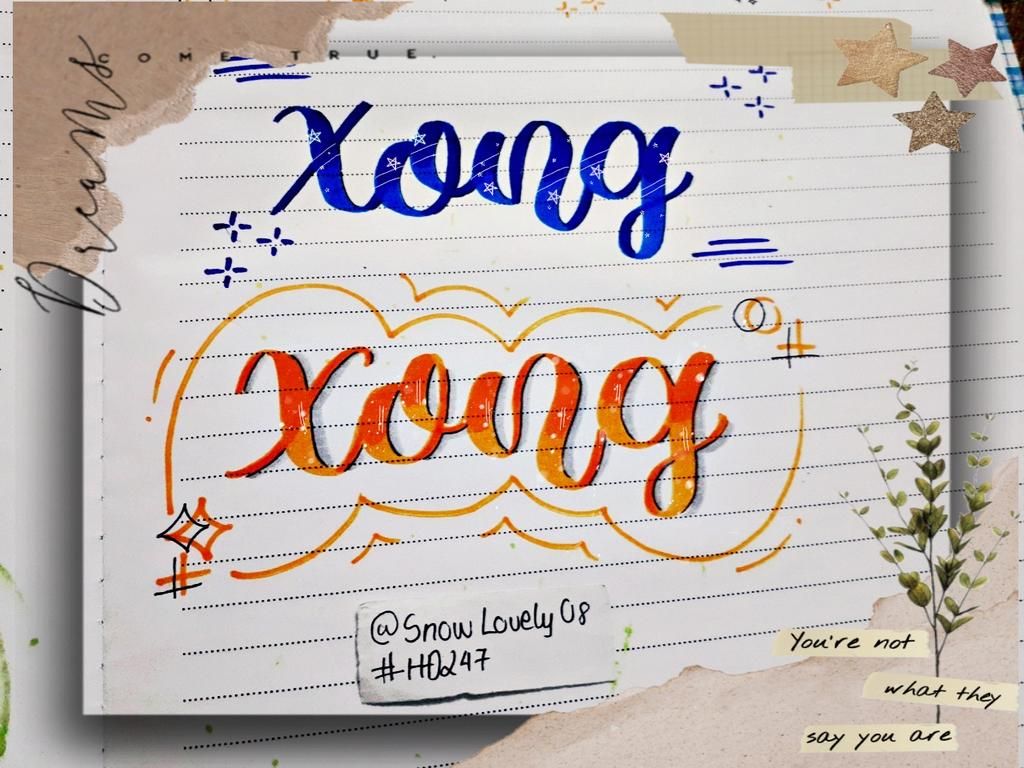 Dreams
COME TRUE.
Xong
Xong
@SnowLovely08
#HD247
You're not
what they
say you are